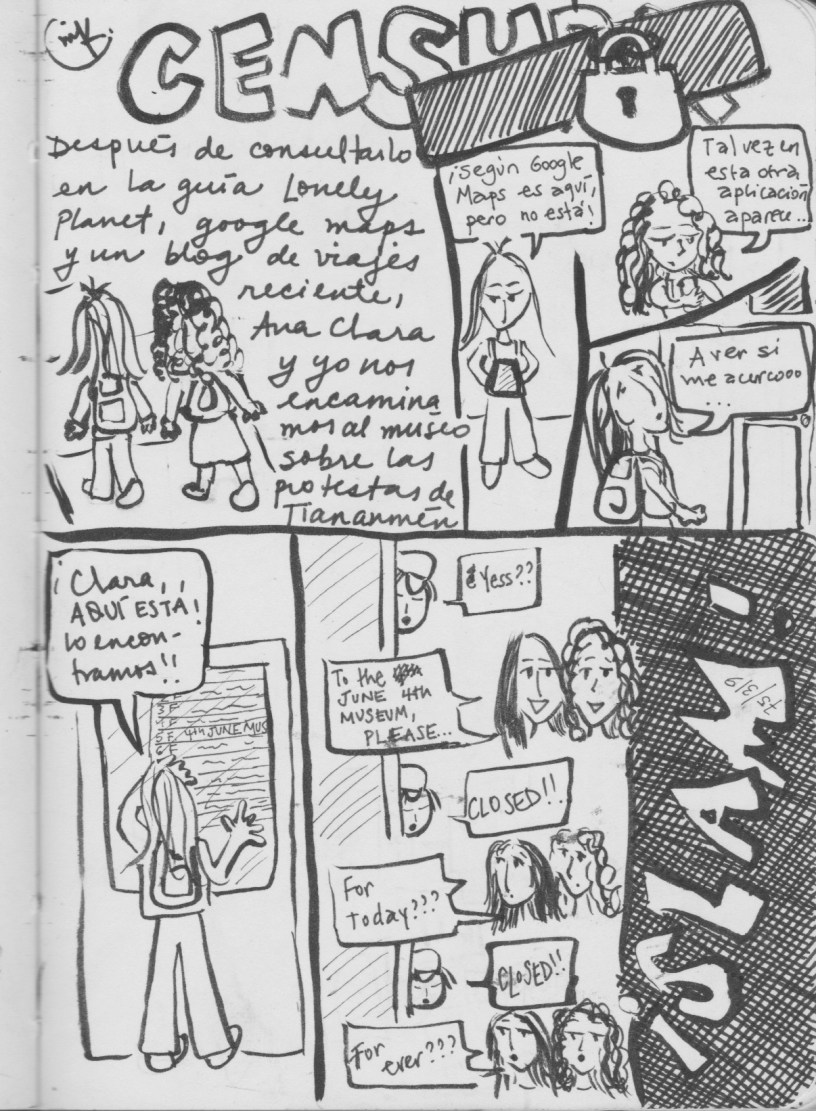 CENSURA
Después de consultarlo
en la guía Lonely
Planet, google maps
y un blog de viajes
reciente,
Ana Clara
y yo nos
encamina
mos al museo
sobre las
protestas de
Tiananmén
¡Según Google
Maps es aquí,
pero no está!
Tal vez en
esta otra
aplicación
aparece...
A ver si
me acercooo
...
¡Clara,
AQUÍ ESTÁ!
lo encon-
tramos!!
3F
4F
5F 4th JUNE MUS
6F
Yess??
To the
JUNE 4th
MUSEUM,
PLEASE...
CLOSED!!
For
today???
CLOSED!!
For
ever???
¡SLAM!